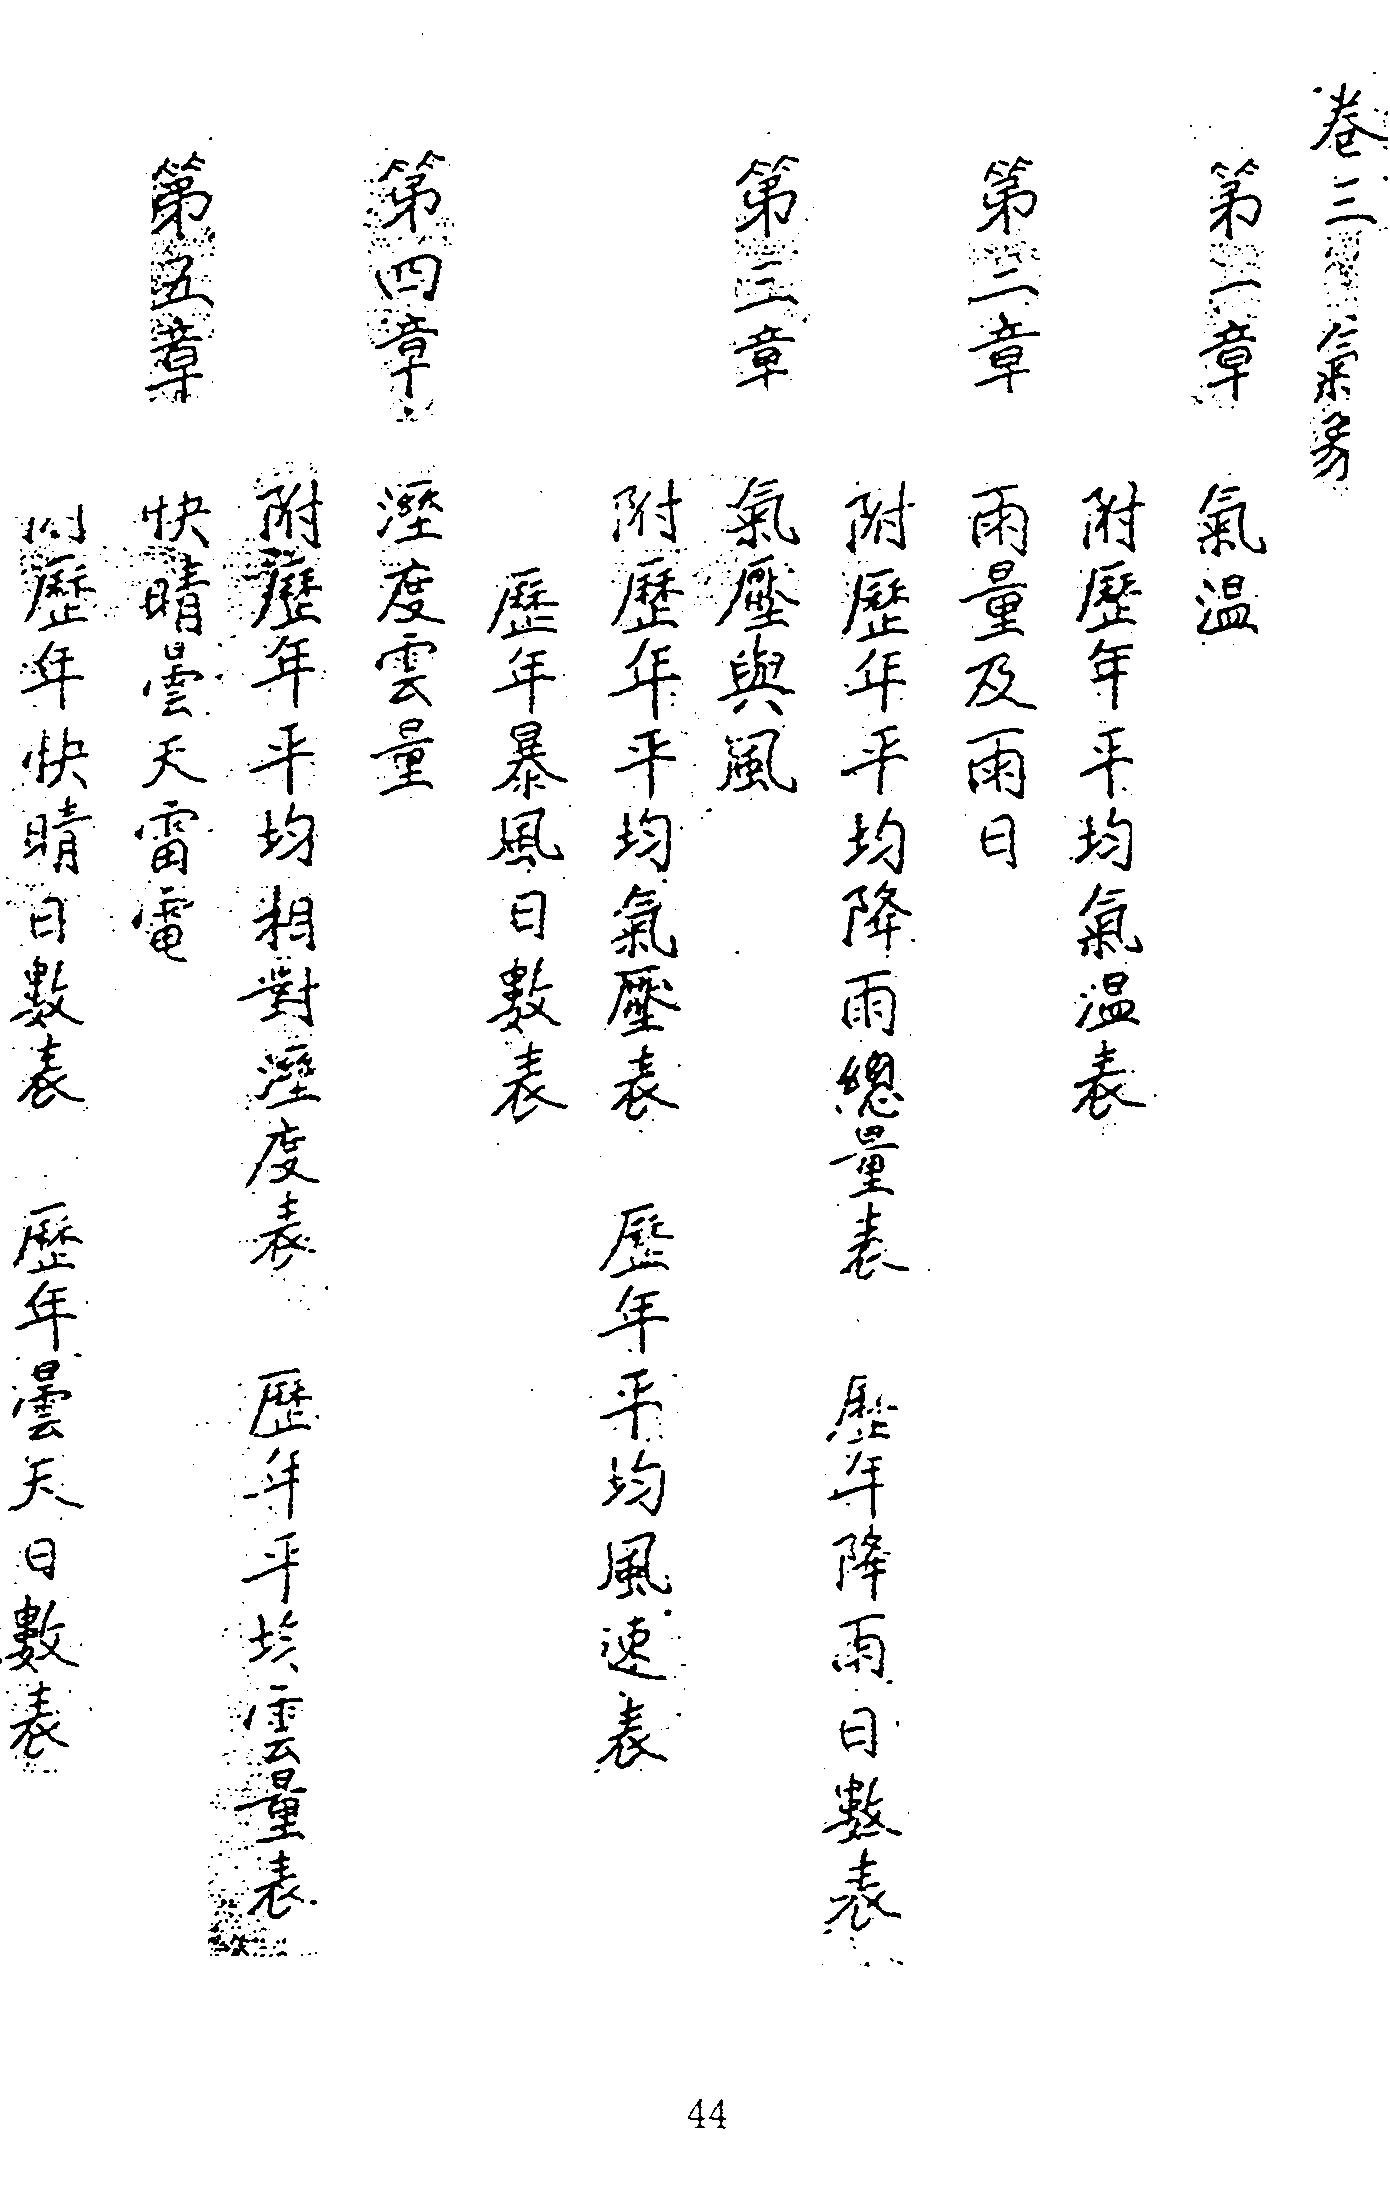 卷三 氣象
第一章 氣温
附歷年平均氣温表
第二章 雨量及雨日
附歷年平均降雨總量表 歷年降雨日數表
第三章 氣壓與風
附歷年平均氣壓表 歷年平均風速表
歷年暴風日數表
第四章 溼度雲量
附歷年平均相對溼度表 歷年平均雲量表
第五章 快晴曇天雷電
附歷年快晴日數表 歷年曇天日數表
44